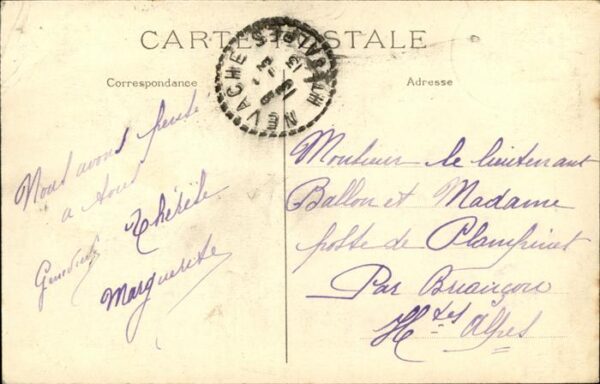 CARTE POSTALE
Correspondance
Adresse
NEVACHE
HTES ALPES
Nous avons pensé
a vous
Thérèse
Marguerite
Monsieur le lieutenant
Ballon et Madame
poste de Plampinet
Par Briançon
Htes Alpes